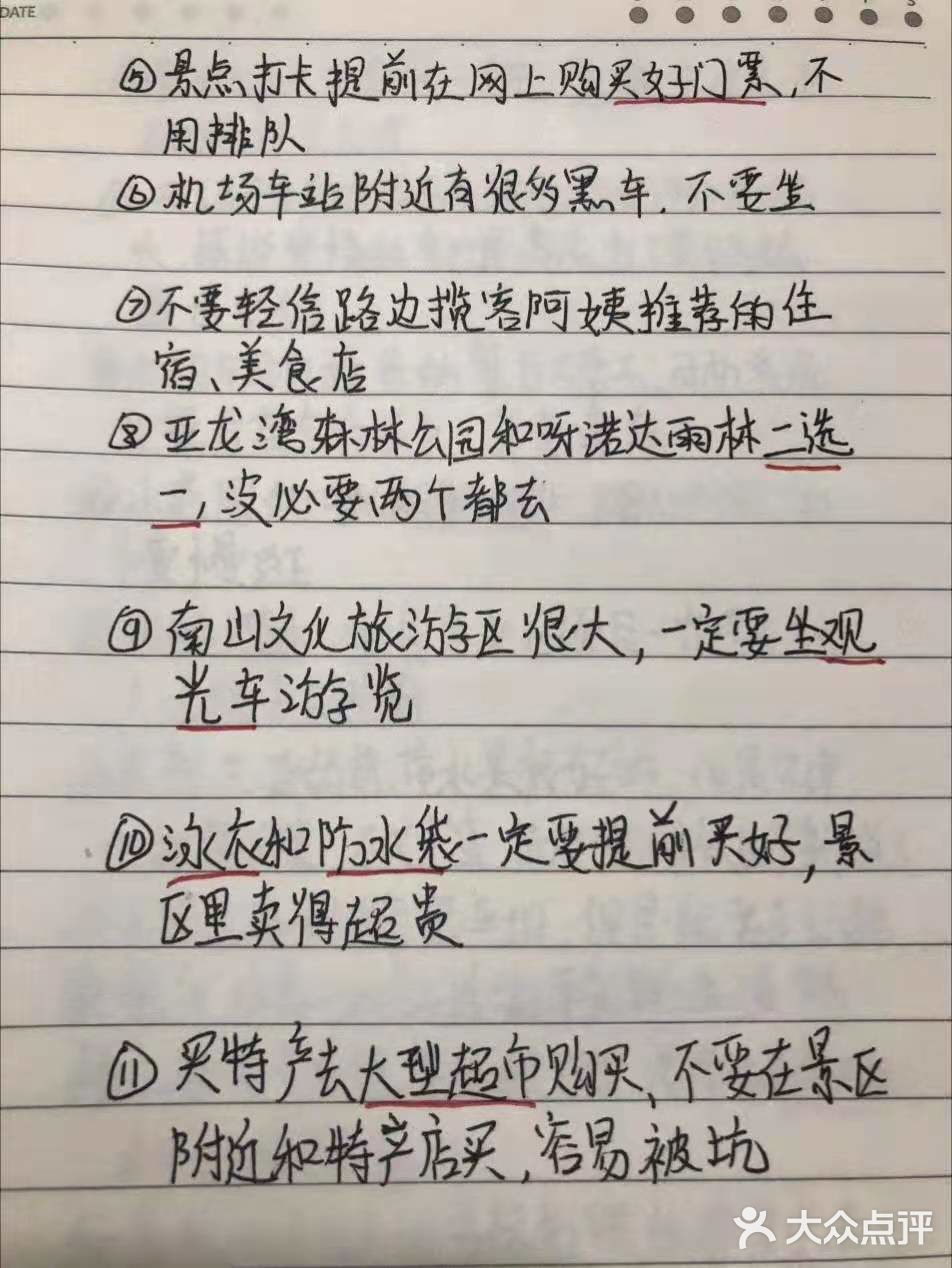 DATE
⑤景点打卡提前在网上购买好门票,不
用排队
⑥机场车站附近有很多黑车,不要坐
⑦不要轻信路边揽客阿姨推荐的住
宿、美食店
⑧亚龙湾森林公园和呀诺达雨林二选
一,没必要两个都去
⑨南山文化旅游区很大,一定要坐观
光车游览
⑩泳衣和防水袋一定要提前买好,景
区里卖得超贵
⑪买特产去大型超市购买,不要在景区
附近和特产店买,容易被坑
大众点评